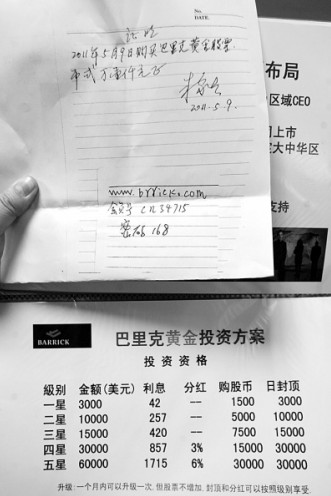 NO.
DATE.
证明
2011年5月9日购买巴里克黄金股票
币弍万壹仟元正
2011.5.9.
www.brrick.com
会员号 cn34715
密码 168
布局
区域CEO
上市
大中华区
支持
BARRICK
巴里克黄金投资方案
投资资格
级别 金额(美元) 利息 分红 购股币 日封顶
一星 3000 42 -- 1500 3000
二星 10000 257 -- 5000 10000
三星 15000 420 -- 7500 15000
四星 30000 857 3% 15000 30000
五星 60000 1715 6% 30000 30000
升级:一个月内可以升级一次,但股票不增加,封顶和分红可以按照级别享受